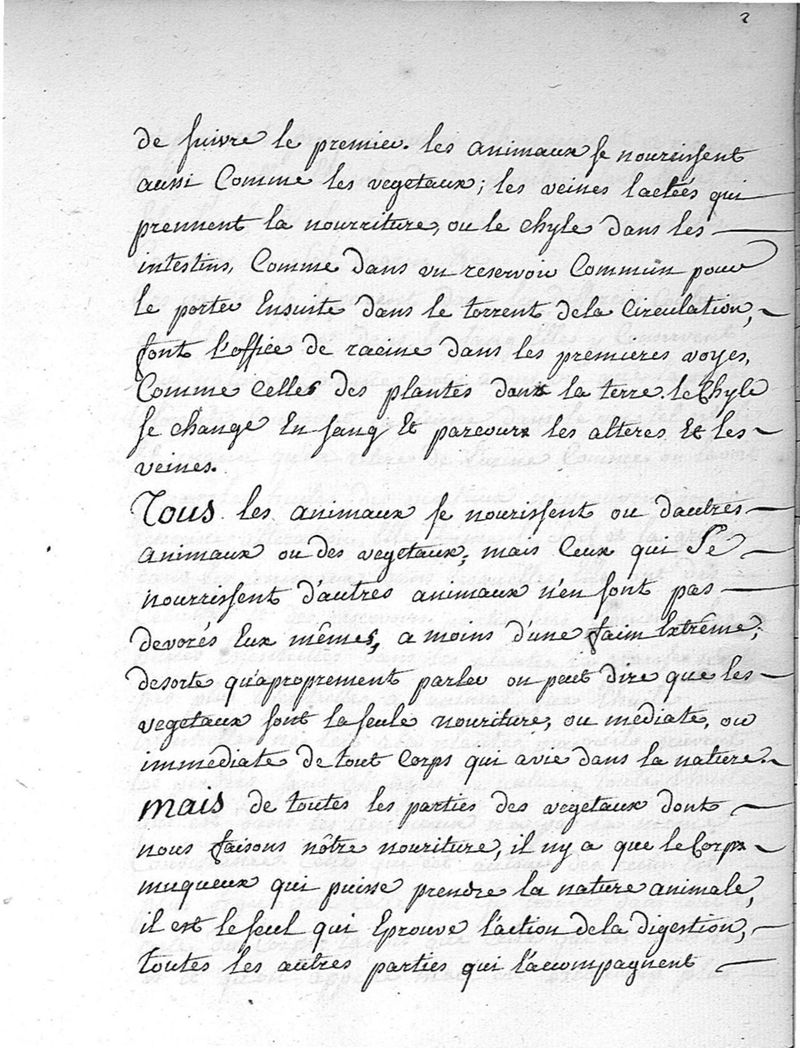 2
de suivre le premier. les animaux se nourrissent
aussi Comme les vegetaux; les veines lactées qui
prennent la nourriture, ou le chyle dans les
intestins, Comme dans un reservoir Commun pour
le porter Ensuite dans le torrent dela Circulation,
font l'office de racine dans les premieres voyes,
Comme celles des plantes dans la terre. le Chyle
se change En sang Et parcourt les alteres Et les
veines.
Tous les animaux se nourissent ou dautres
animaux ou des vegetaux; mais Ceux qui Se
nourrissent d'autres animaux n'en sont pas
devorés Eux mêmes, a moins d'une faim Extrême;
desorte qu'aproprement parler on peut dire que les
vegetaux sont la seule nouriture, ou mediate, ou
immediate de tout Corps qui a vie dans la nature.
mais de toutes les parties des vegetaux dont
nous faisons nôtre nouriture, il ny a que le Corps
muqueux qui puisse prendre la nature animale,
il est le seul qui Eprouve l'action dela digestion,
toutes les autres parties qui l'accompagnent